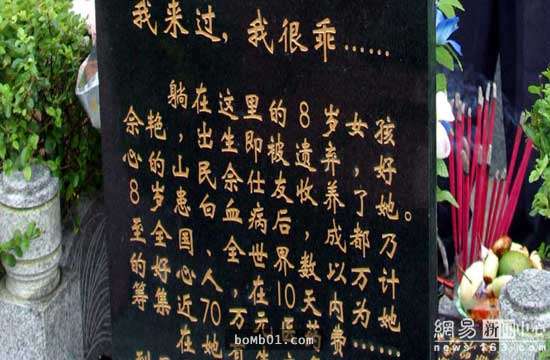 我来过，我很乖……
躺在这里的8岁女孩
佘艳，出生即被遗弃，好
心的山民佘仕友收养了她。
8岁患白血病后，成都乃
至全国、全世界数以万计
的好心人，在10天内为她
筹集近70万元医药费……
bomb01.com
網易 新闻中心
news.163.com